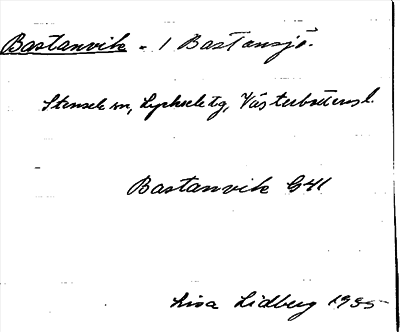 Bastanvik - i Bastansjö.
Stensele sn, Lycksele tg, Västerbottensl.
Bastanvik G41
Lisa Lidberg 1935